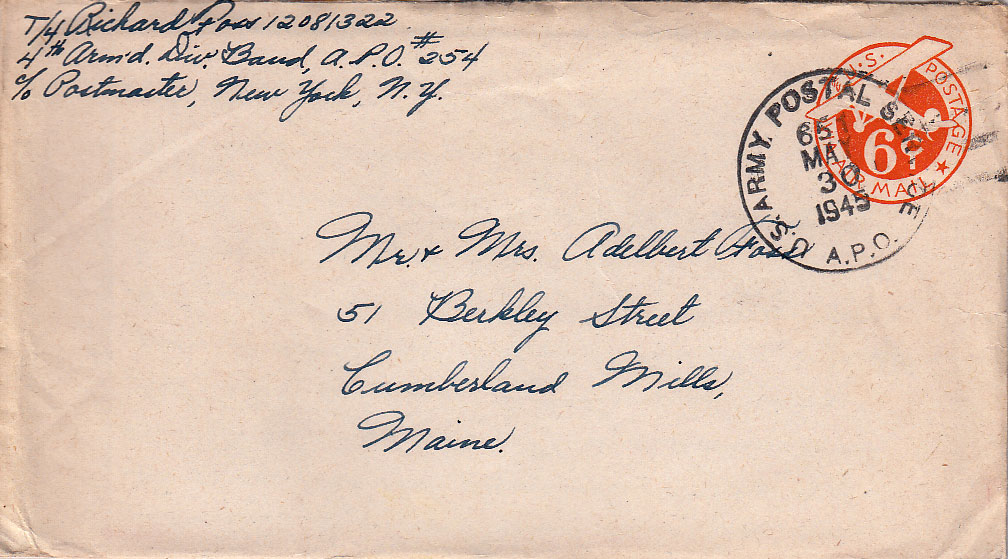 T/4 Richard Foss 12081322
4th Arm'd. Div. Band, A.P.O. #254
c/o Postmaster, New York, N.Y.
U.S. POSTAGE
6¢
AIR MAIL
U.S. ARMY POSTAL SERVICE
MAY
30
1945
A.P.O.
Mr. & Mrs. Adelbert Foss
51 Berkley Street
Cumberland Mills,
Maine.